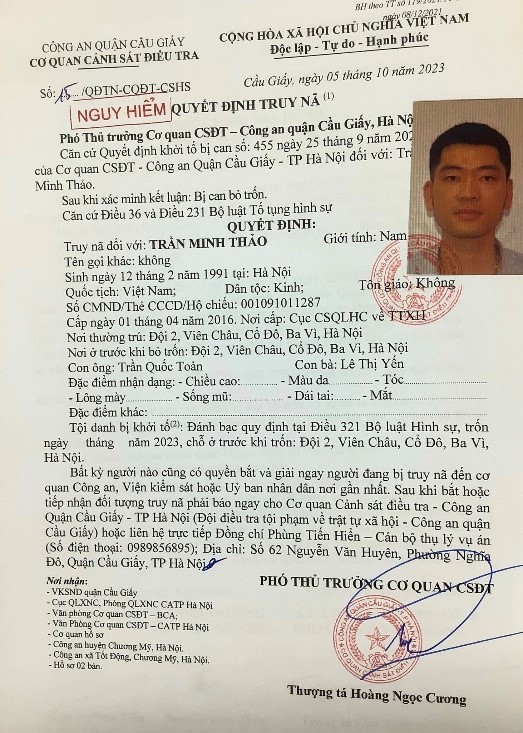 BH theo TT số 119/2021/
ngày 08/12/2021
CÔNG AN QUẬN CẦU GIẤY
CƠ QUAN CẢNH SÁT ĐIỀU TRA
CỘNG HÒA XÃ HỘI CHỦ NGHĨA VIỆT NAM
Độc lập - Tự do - Hạnh phúc
Số: 15 /QĐTN-CQĐT-CSHS
Cầu Giấy, ngày 05 tháng 10 năm 2023
NGUY HIỂM
QUYẾT ĐỊNH TRUY NÃ (1)
Phó Thủ trưởng Cơ quan CSĐT – Công an quận Cầu Giấy, Hà Nội
Căn cứ Quyết định khởi tố bị can số: 455 ngày 25 tháng 9 năm 202
của Cơ quan CSĐT - Công an Quận Cầu Giấy - TP Hà Nội đối với: Tr
Minh Thảo.
Sau khi xác minh kết luận: Bị can bỏ trốn.
Căn cứ Điều 36 và Điều 231 Bộ luật Tố tụng hình sự
QUYẾT ĐỊNH:
Truy nã đối với: TRẦN MINH THẢO Giới tính: Nam
Tên gọi khác: không
Sinh ngày 12 tháng 2 năm 1991 tại: Hà Nội
Quốc tịch: Việt Nam; Dân tộc: Kinh; Tôn giáo: Không
Số CMND/Thẻ CCCD/Hộ chiếu: 001091011287
Cấp ngày 01 tháng 04 năm 2016. Nơi cấp: Cục CSQLHC về TTXH
Nơi thường trú: Đội 2, Viên Châu, Cổ Đô, Ba Vì, Hà Nội
Nơi ở trước khi bỏ trốn: Đội 2, Viên Châu, Cổ Đô, Ba Vì, Hà Nội
Con ông: Trần Quốc Toản Con bà: Lê Thị Yến
Đặc điểm nhận dạng: - Chiều cao: - Màu da - Tóc
- Lông mày - Sống mũ: - Dái tai: - Mắt
Đặc điểm khác:
Tội danh bị khởi tố(2): Đánh bạc quy định tại Điều 321 Bộ luật Hình sự, trốn
ngày tháng năm 2023, chỗ ở trước khi trốn: Đội 2, Viên Châu, Cổ Đô, Ba Vì,
Hà Nội.
Bất kỳ người nào cũng có quyền bắt và giải ngay người đang bị truy nã đến cơ
quan Công an, Viện kiểm sát hoặc Uỷ ban nhân dân nơi gần nhất. Sau khi bắt hoặc
tiếp nhận đối tượng truy nã phải báo ngay cho Cơ quan Cảnh sát điều tra - Công an
Quận Cầu Giấy - TP Hà Nội (Đội điều tra tội phạm về trật tự xã hội - Công an quận
Cầu Giấy) hoặc liên hệ trực tiếp Đồng chí Phùng Tiến Hiển – Cán bộ thụ lý vụ án
(Số điện thoại: 0989856895); Địa chỉ: Số 62 Nguyễn Văn Huyên, Phường Nghĩa
Đô, Quận Cầu Giấy, TP Hà Nội
Nơi nhận:
- VKSND quận Cầu Giấy
- Cục QLXNC, Phòng QLXNC CATP Hà Nội
- Văn phòng Cơ quan CSĐT – BCA;
- Văn Phòng Cơ quan CSĐT – CATP Hà Nội
- Cơ quan hồ sơ
- Công an huyện Chương Mỹ, Hà Nội.
- Công an xã Tốt Động, Chương Mỹ, Hà Nội.
- Hồ sơ 02 bản.
PHÓ THỦ TRƯỞNG CƠ QUAN CSĐT
Thượng tá Hoàng Ngọc Cương